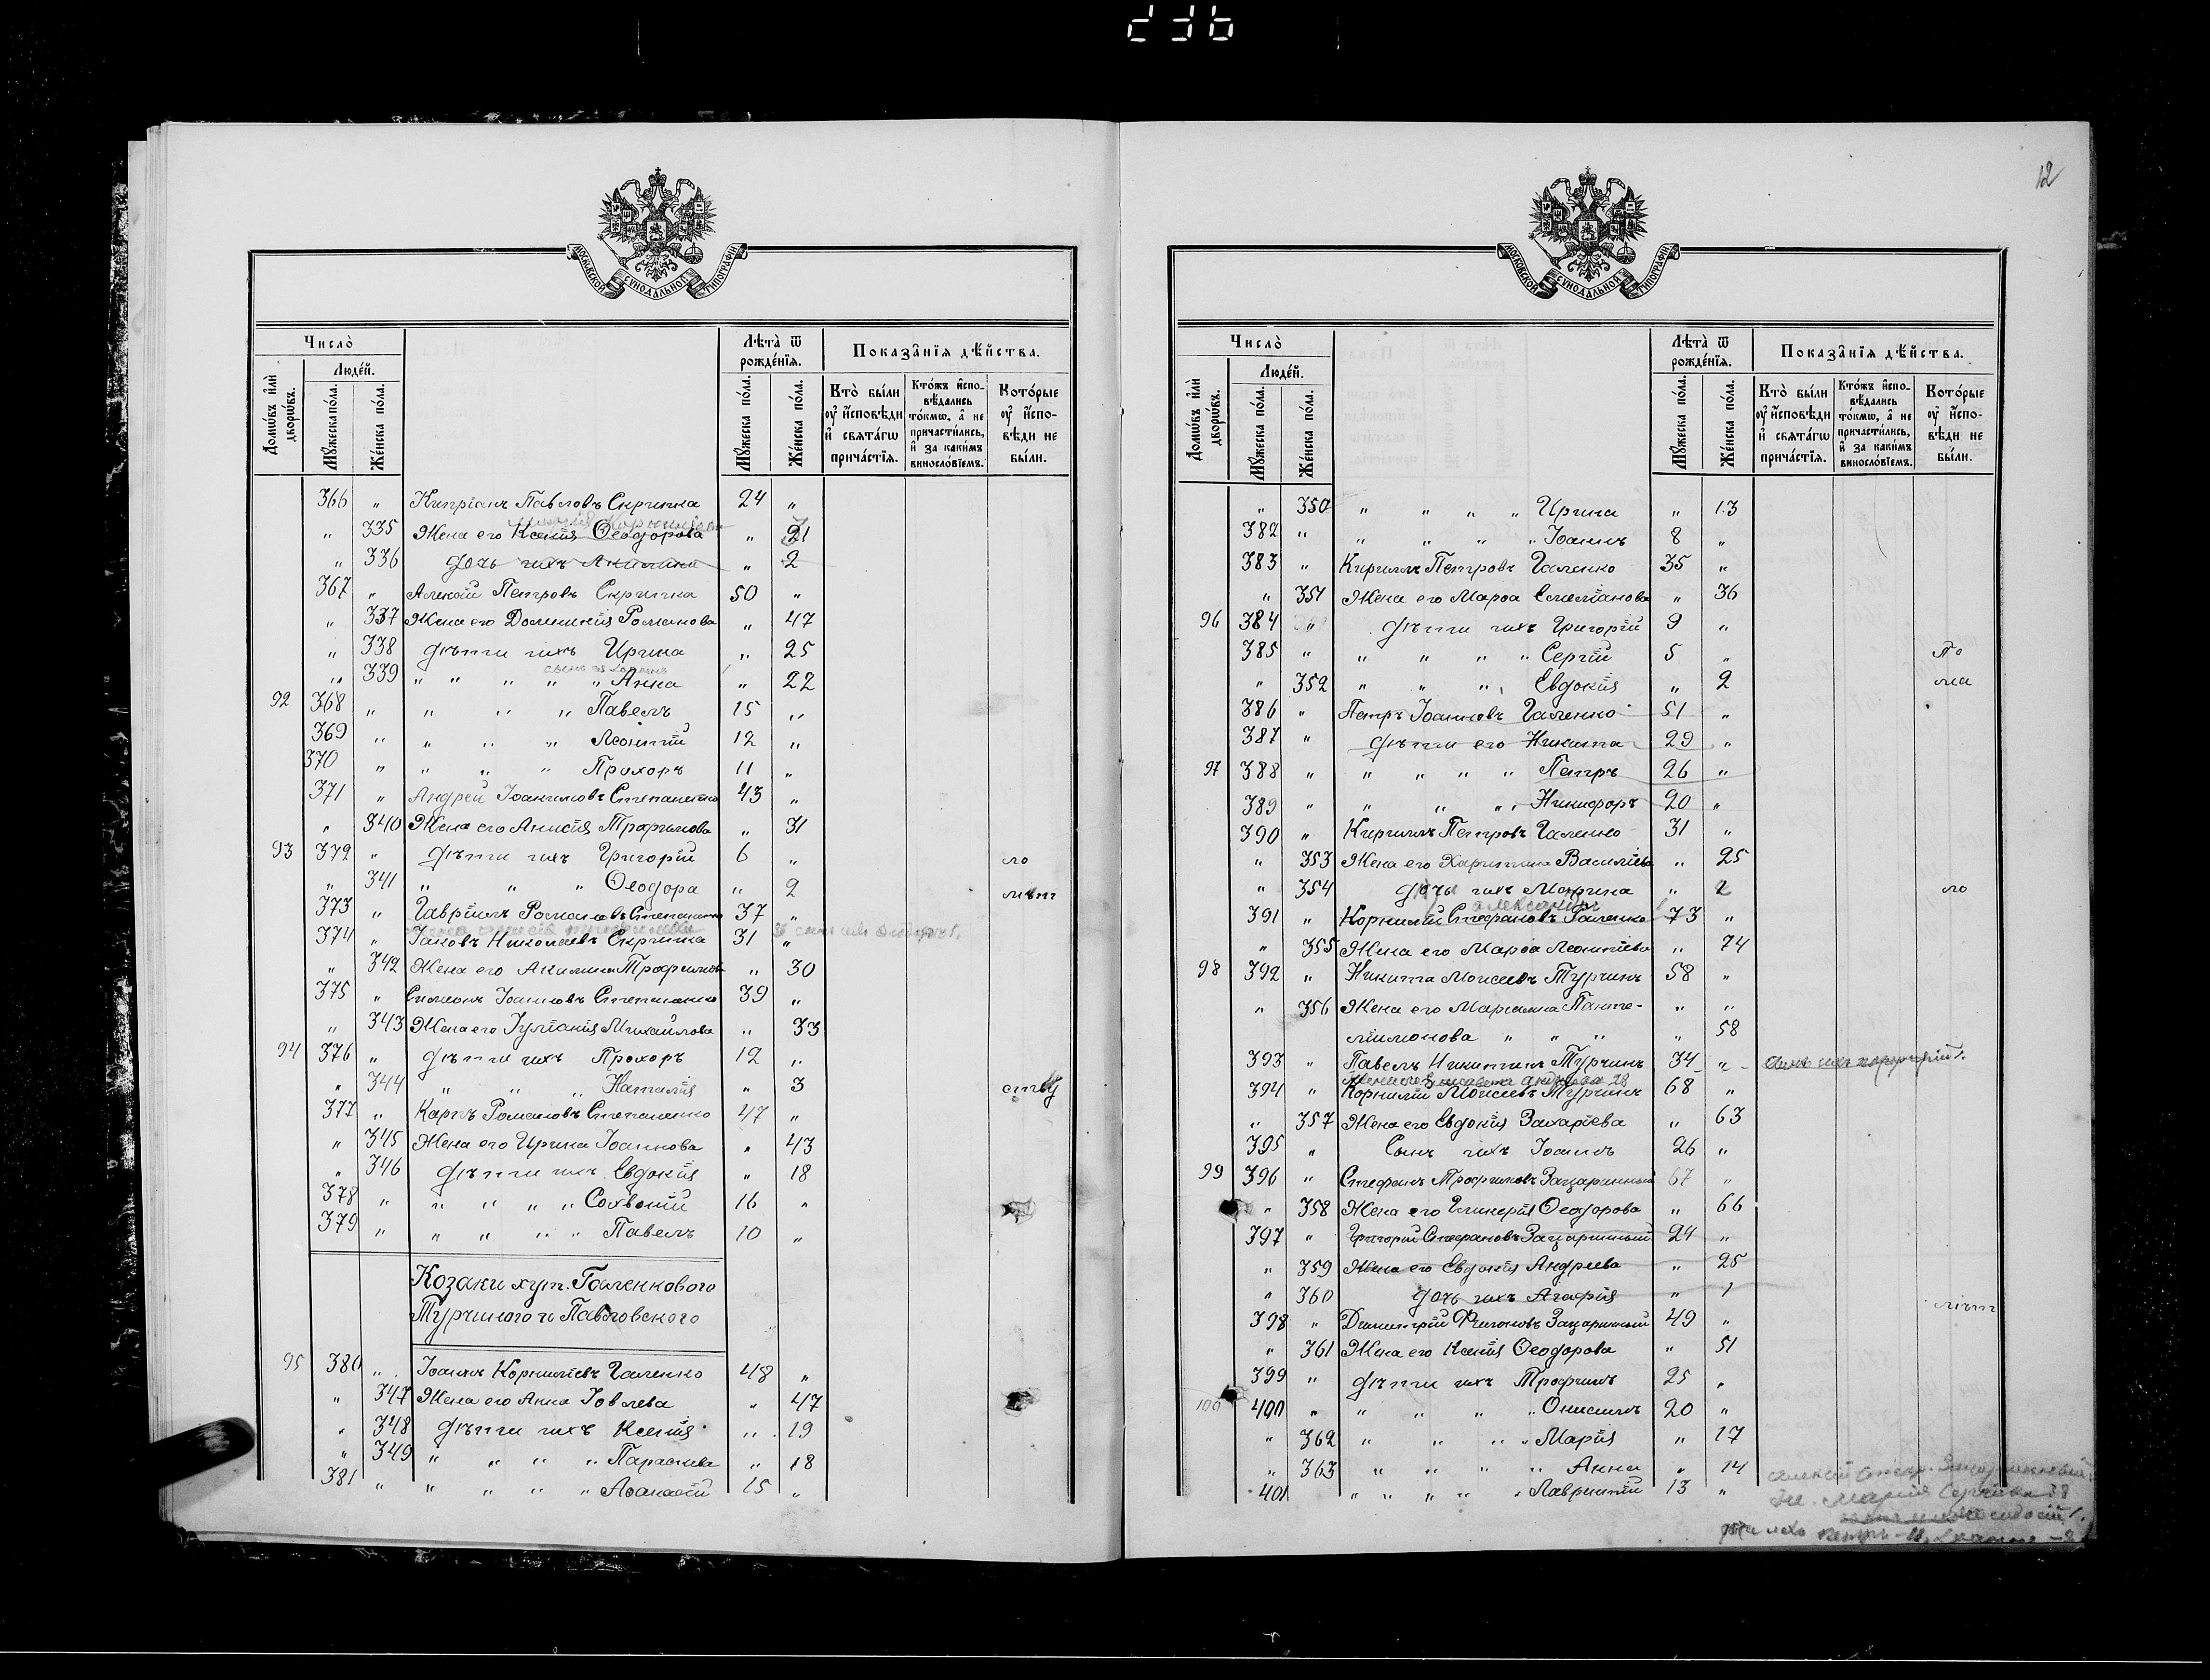 236
МОСКОВСКОЙ СУНОДАЛЬНОЙ ТИПОГРАФІИ
Число̀
Людей.
Домѡвъ и҆лѝ дворѡвъ.
Мꙋжеска по́ла.
Же́нска по́ла.
Лѣта̀ ѿ рожде́нїѧ.
Мꙋжеска по́ла.
Же́нска по́ла.
Показа̑нїѧ дѣ́йства.
Кто̀ бы́ли ᲂу҆ и҆́сповѣди и҆ свѧта́гѡ прича́стїѧ.
Кто́жъ и҆спо-вѣ́дались то́кмѡ, а҆ не причасти́лись, и҆ за каки́мъ винослові́емъ.
Кото́рые ᲂу҆ и҆́спо-вѣди не бы́ли.
366 " Кипріанъ Павловъ Скрипка 24 "
" 335 Жена его Ксенія Ѳеодорова " 21
" 336 дочь ихъ Акилина " 2
367 " Алексій Петровъ Скрипка 50 "
" 337 Жена его Доминикія Романова " 47
" 338 дѣти ихъ Ирина " 25
" 339 " " " " " Анна " 22
92 368 " " " " Павелъ 15 "
369 " " " " Леонтій 12 "
370 " " " " Прохоръ 11 "
371 " Андрей Іоакимовъ Степаненко 43 "
" 340 Жена его Анисія Трофимова " 31
93 372 " дѣти ихъ Григорій 6 " по
" 341 " " " Ѳеодора " 2 лѣт
373 " Гавріилъ Романовъ Степаненко 37 "
374 " Іаковъ Николаевъ Скрипка 31 "
" 342 Жена его Акилина Трофимова " 30
375 " Симеонъ Іоанновъ Степаненко 39 "
" 343 Жена его Іуліанія Михайлова " 33
94 376 " дѣти ихъ Прохоръ 12 "
" 344 " " " Наталія " 3 ству
377 " Карпъ Романовъ Степаненко 47 "
" 345 Жена его Ирина Іоаннова " 43
" 346 дѣти ихъ Евдокія " 18
378 " " " " " Созвоній 16 "
379 " " " " " Павелъ 10 "
Козаки хут. Галенкового
Турчиного и Павловского
95 380 " Іоаннъ Корниліевъ Галенко 48 "
" 347 Жена его Анна Іовлева " 47
" 348 дѣти ихъ Ксенія " 19
" 349 " " " " Параскева " 18
381 " " " " " Аѳанасій 15 "
12
МОСКОВСКОЙ СУНОДАЛЬНОЙ ТИПОГРАФІИ
Число̀
Людей.
Домѡвъ и҆лѝ дворѡвъ.
Мꙋжеска по́ла.
Же́нска по́ла.
Лѣта̀ ѿ рожде́нїѧ.
Мꙋжеска по́ла.
Же́нска по́ла.
Показа̑нїѧ дѣ́йства.
Кто̀ бы́ли ᲂу҆ и҆́сповѣди и҆ свѧта́гѡ прича́стїѧ.
Кто́жъ и҆спо-вѣ́дались то́кмѡ, а҆ не причасти́лись, и҆ за каки́мъ винослові́емъ.
Кото́рые ᲂу҆ и҆́спо-вѣди не бы́ли.
" 350 " " " " Ирина " 13
382 " " " " " Іоаннъ 8 "
383 " Кириллъ Петровъ Галенко 35 "
" 351 Жена его Марѳа Емеліанова " 36
96 384 " дѣти ихъ Григорій 9 "
385 " " " " " Сергій 5 " По
" 352 " " " Евдокія " 2 ма
386 " Петръ Іоанновъ Галенко 51 "
387 " дѣти его Никита 29 "
97 388 " " " " " Петръ 26 "
389 " " " " Никифоръ 20 "
390 " Кириллъ Петровъ Галенко 31 "
" 353 Жена его Харитина Василіева " 25
" 354 дочь ихъ Марина " 2 ло
Александръ
391 " Корнилій Стефановъ Галенко 73 "
" 355 Жена его Марѳа Леонтіева " 74
98 392 " Никита Моисеевъ Турчинъ 58 "
" 356 Жена его Маріамна Панте- " "
лимонова " " " " 58
393 " Павелъ Никитинъ Турчинъ 34 "
394 " Корнилій Моисеевъ Турчинъ 68 "
" 357 Жена его Евдокія Захаріева " 63
395 " Сынъ ихъ Іоаннъ 26 "
99 396 " Стефанъ Трофимовъ Зацаринный 67 "
" 358 Жена его Гликерія Ѳеодорова " 66
397 " Григорій Стефановъ Зацаринный 24 "
" 359 Жена его Евдокія Андреева " 25
" 360 дочь ихъ Агафія " 1 лѣт
398 " Димитрій Филоновъ Зацаринный 49 "
" 361 Жена его Ксенія Ѳеодорова " 51
399 " дѣти ихъ Трофимъ 25 "
100 400 " " " " " Онисимъ 20 "
" 362 " " " " Марія " 17
" 363 " " " " Анна " 14
401 " " " " " Лаврентій 13 "